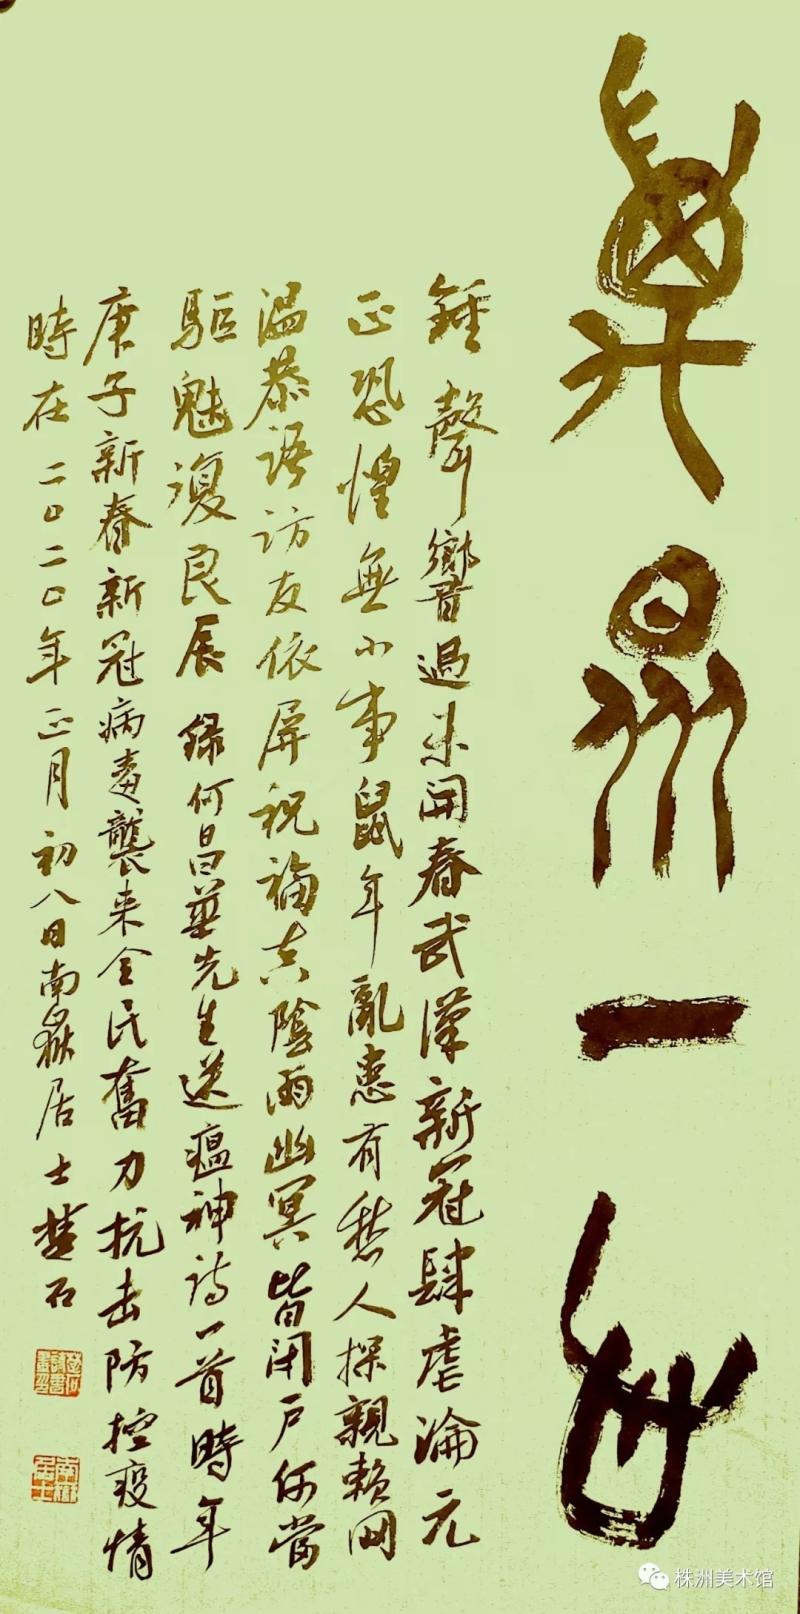 萬眾一心
鍾聲響過未開春武漢新冠肆虐淪元
正恐惶無小事鼠年亂患有愁人探親賴网
温恭语访友依屏祝福真陰雨幽冥皆闭户何當
驅魅復良辰 録何昌華先生送瘟神诗一首時年
庚子新春新冠病毒襲来全民奮力抗击防控疫情
時在二〇二〇年正月初八日南嶽居士楚石
南嶽居士
株洲美术馆